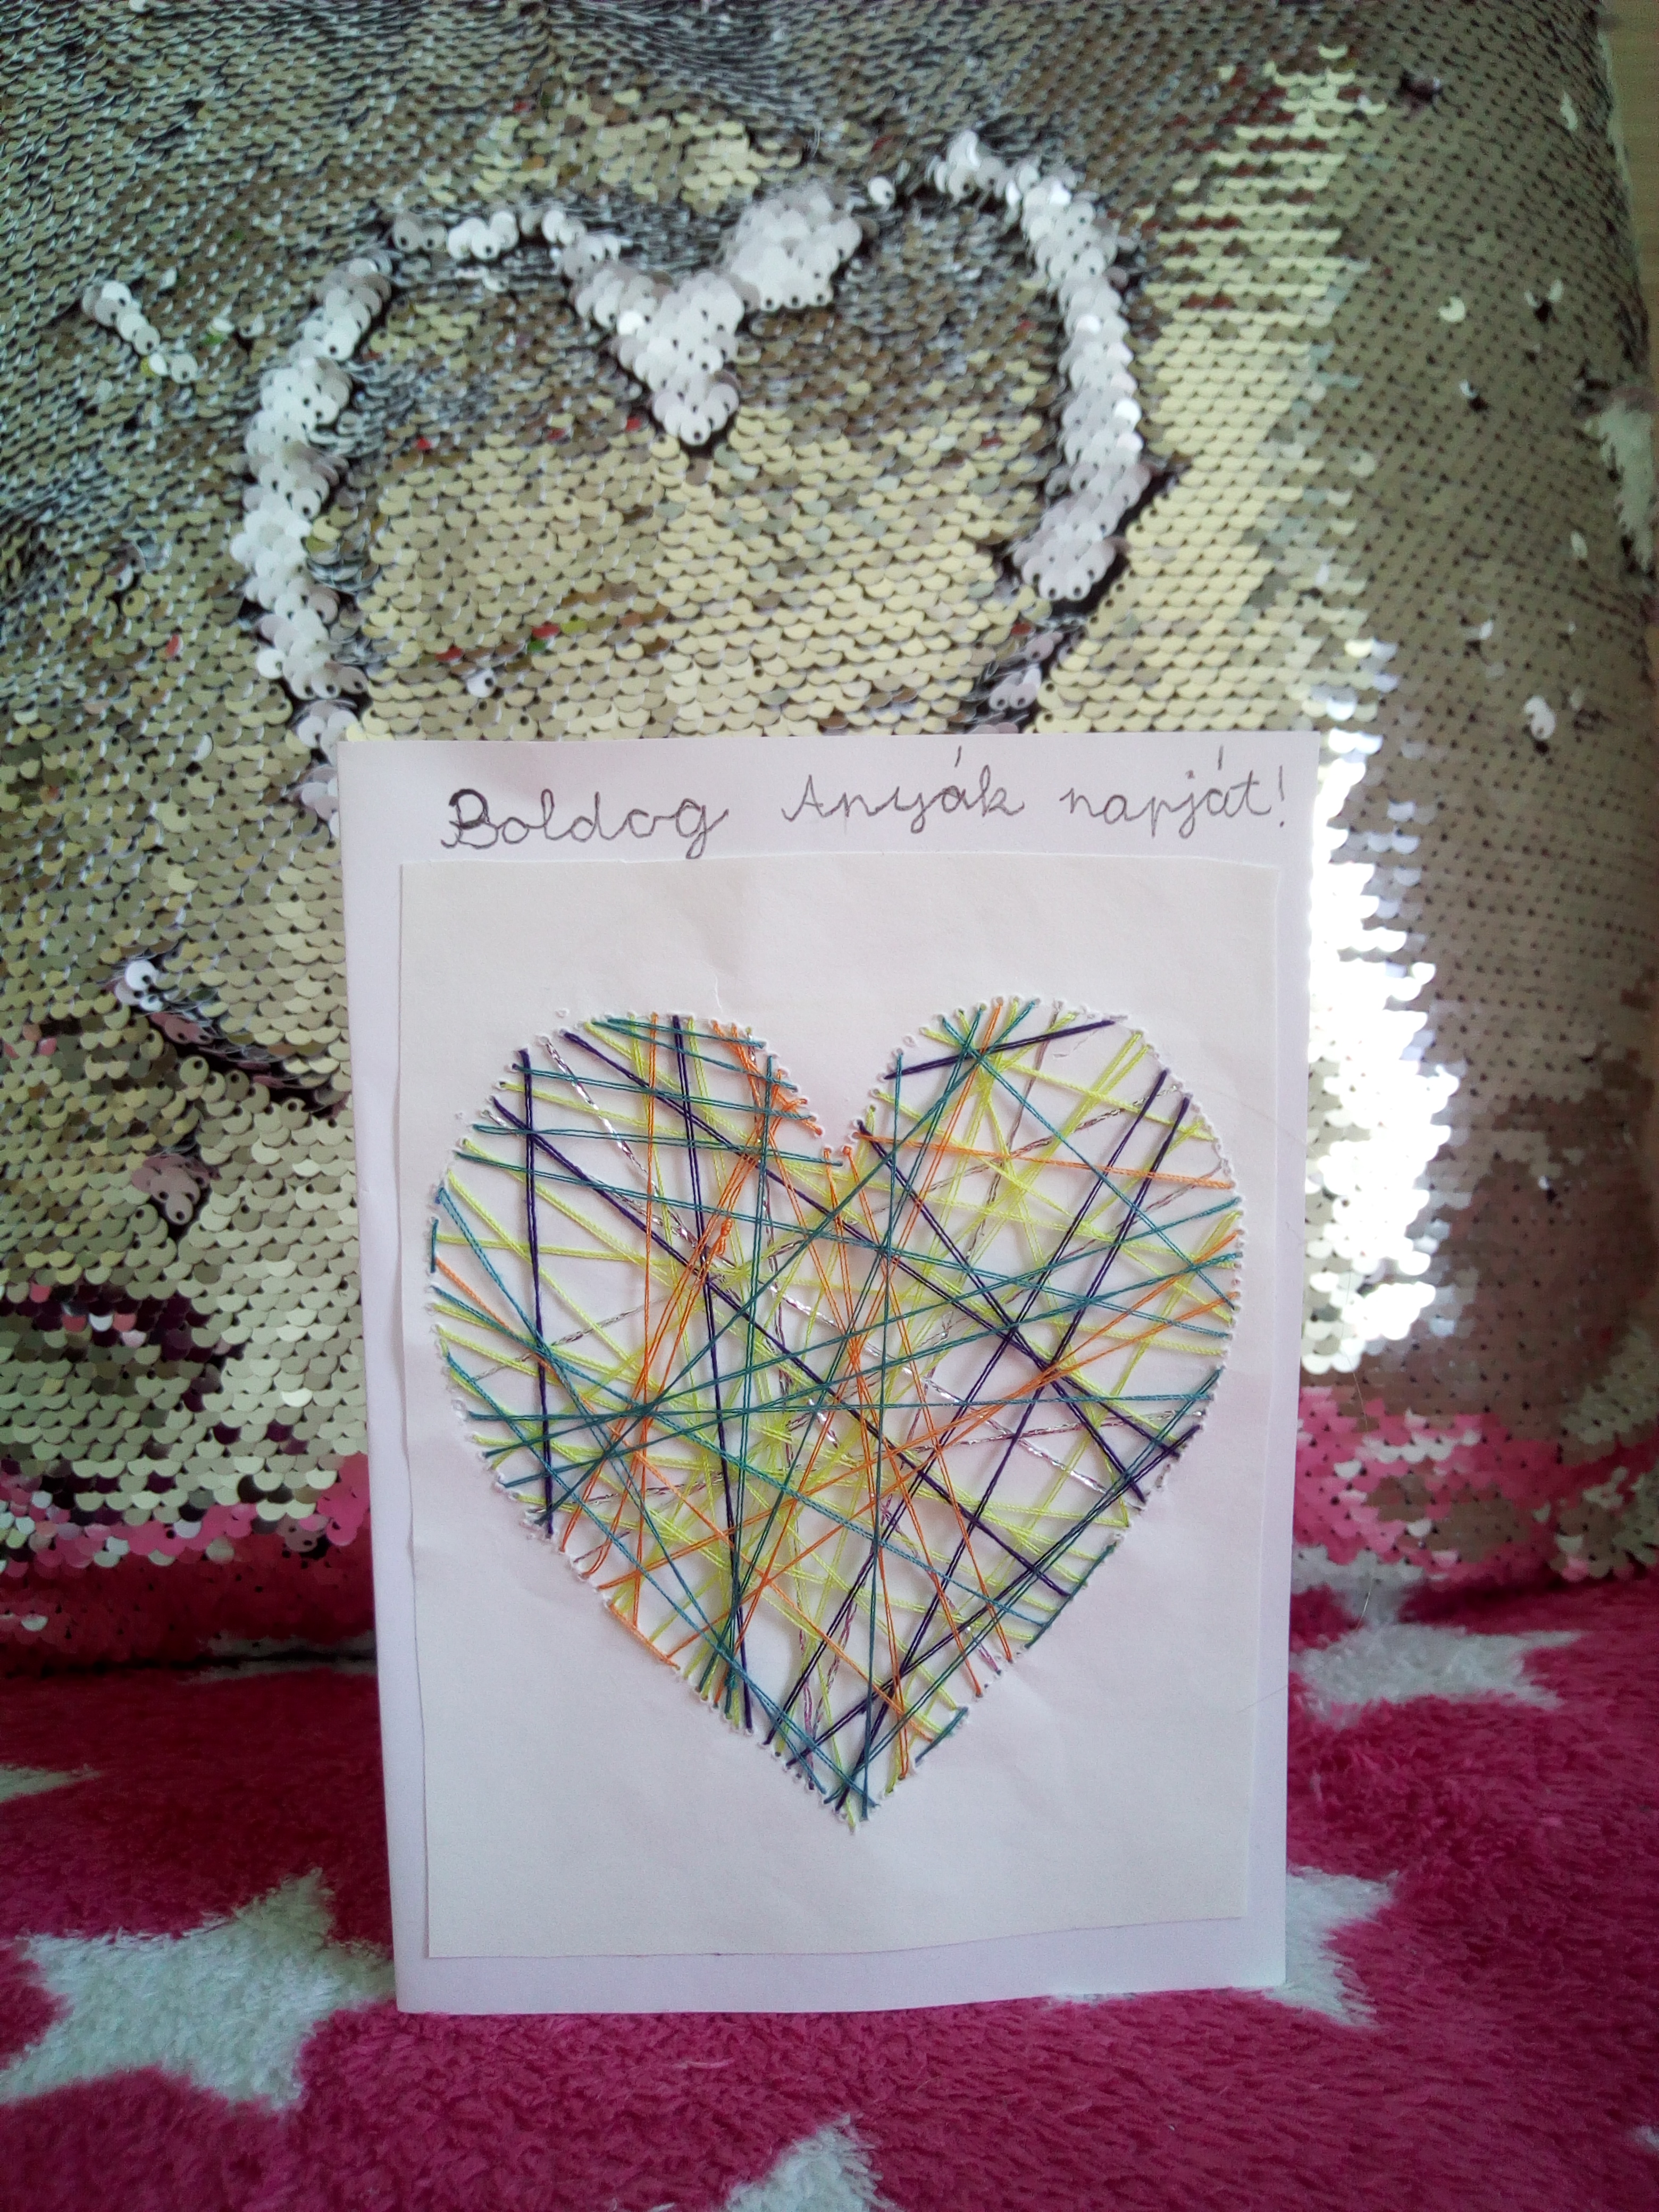 Boldog Anyák napját!